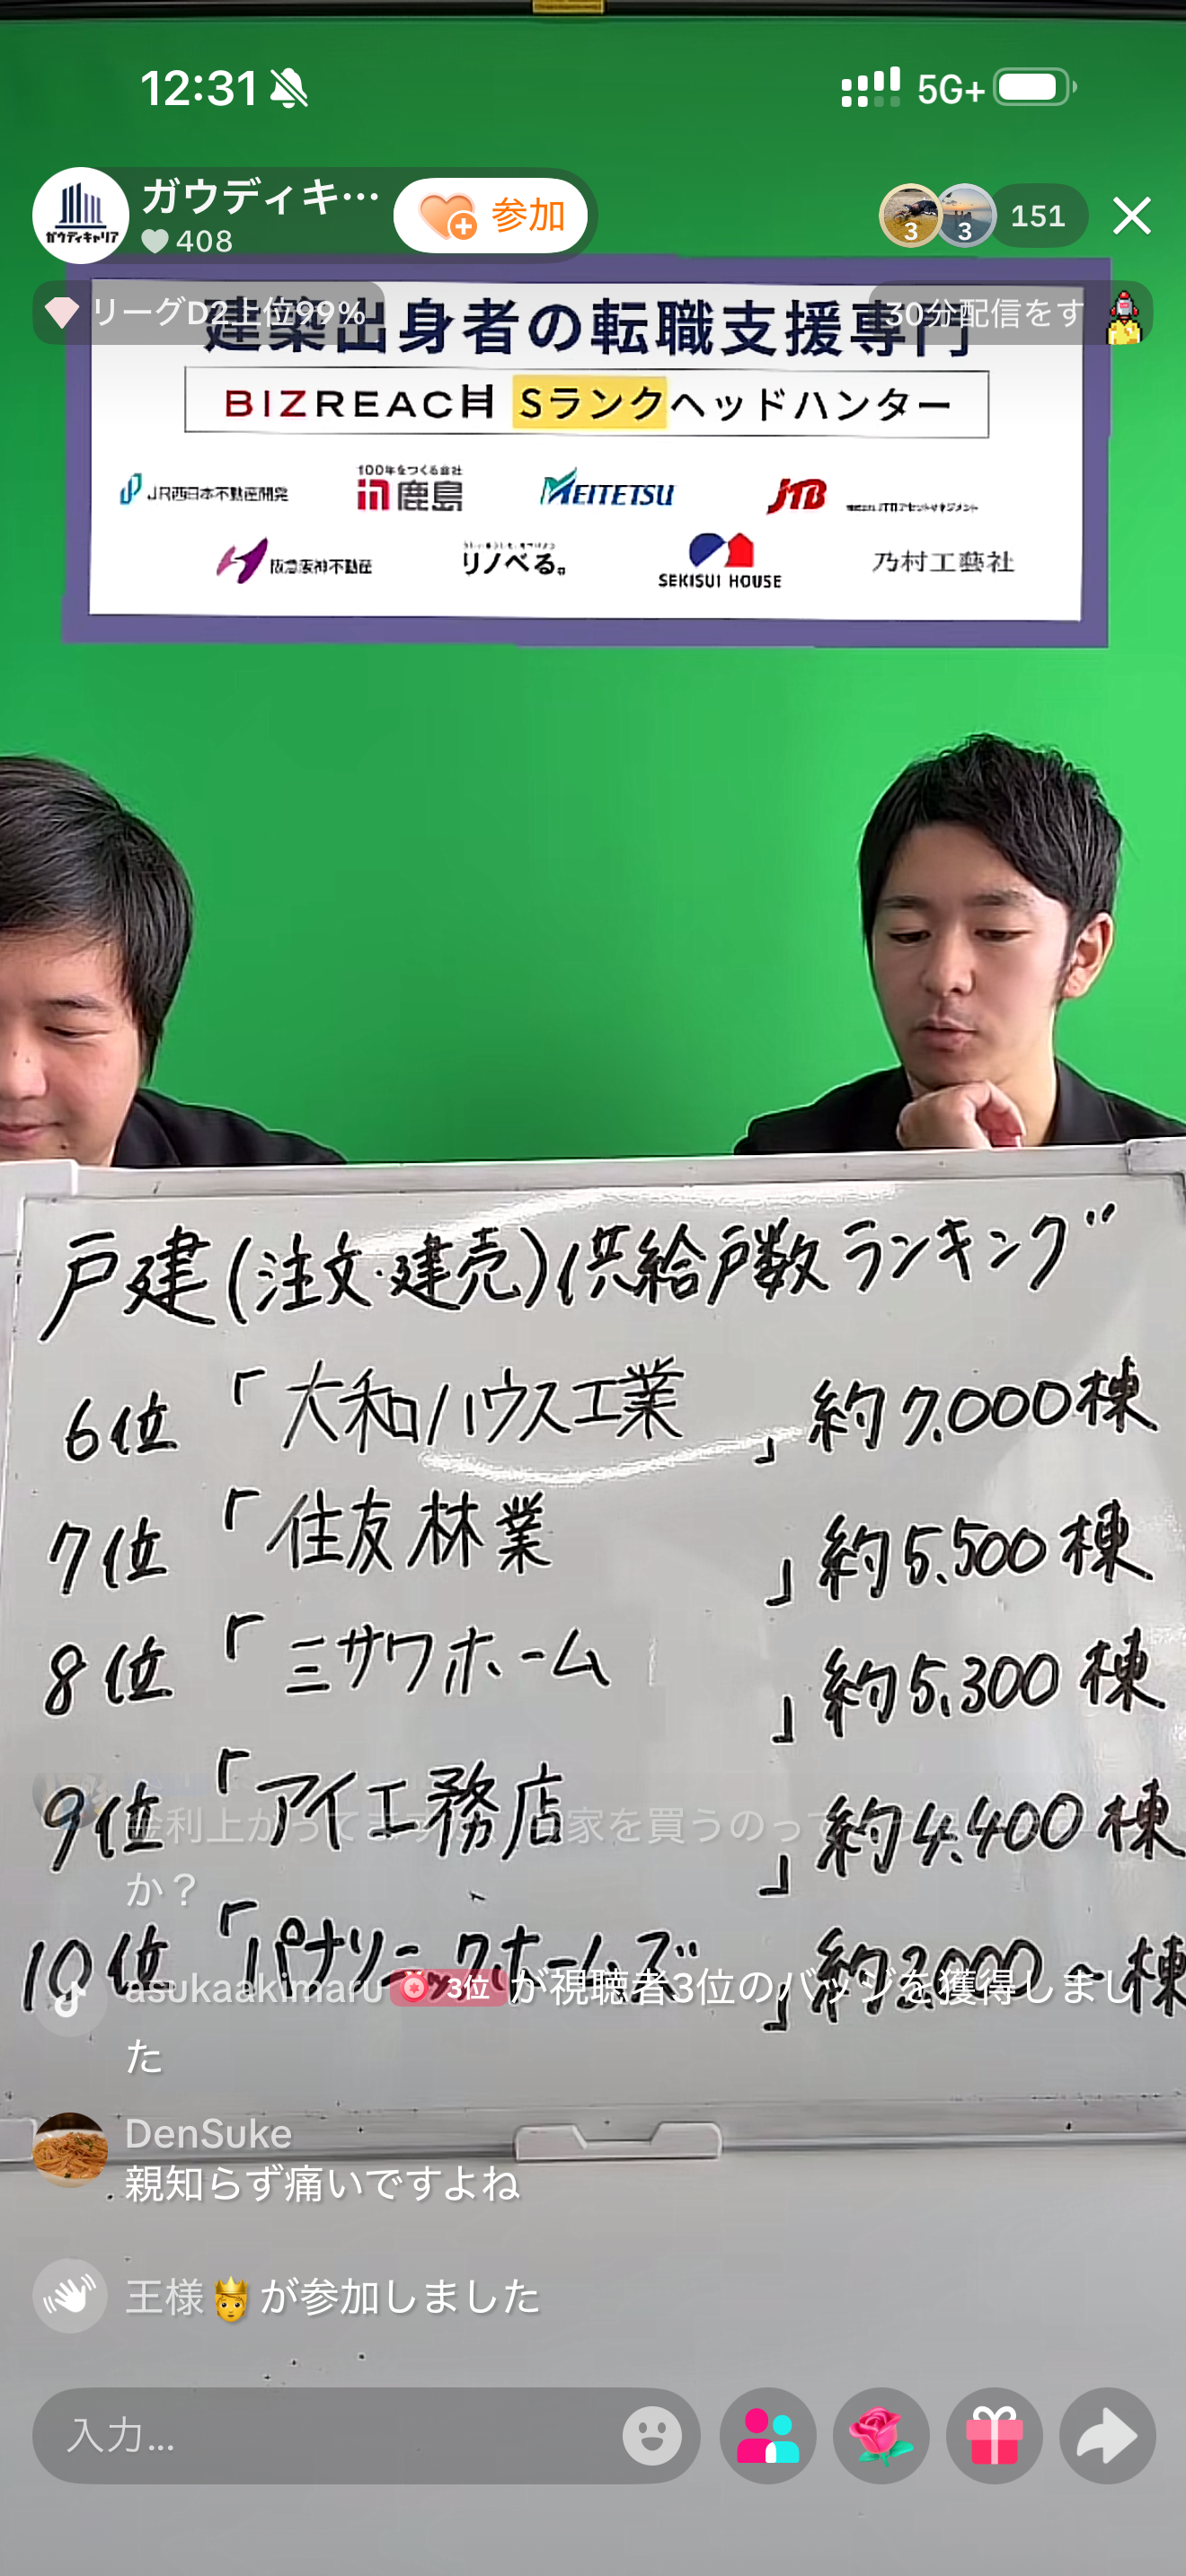 12:31
5G+
ガウディキ…
408
参加
3
3
151
ガウディキャリア
リーグD2上位99%
30分配信をす
建築出身者の転職支援専門
BIZREACH Sランクヘッドハンター
JR西日本不動産開発
100年をつくる会社
鹿島
MEITETSU
JTB
阪急阪神不動産
リノベる。
SEKISUI HOUSE
乃村工藝社
戸建(注文・建売)供給戸数ランキング
6位「大和ハウス工業」約7,000棟
7位「住友林業」約5,500棟
8位「ミサワホーム」約5,300棟
9位「アイ工務店」約4,400棟
10位「パナソニックホームズ」約
棟
金利上がってます
家を買うのって
か？
asukaakimaru 3位 が視聴者3位のバッジを獲得しまし
た
DenSuke
親知らず痛いですよね
王様🤴が参加しました
入力...